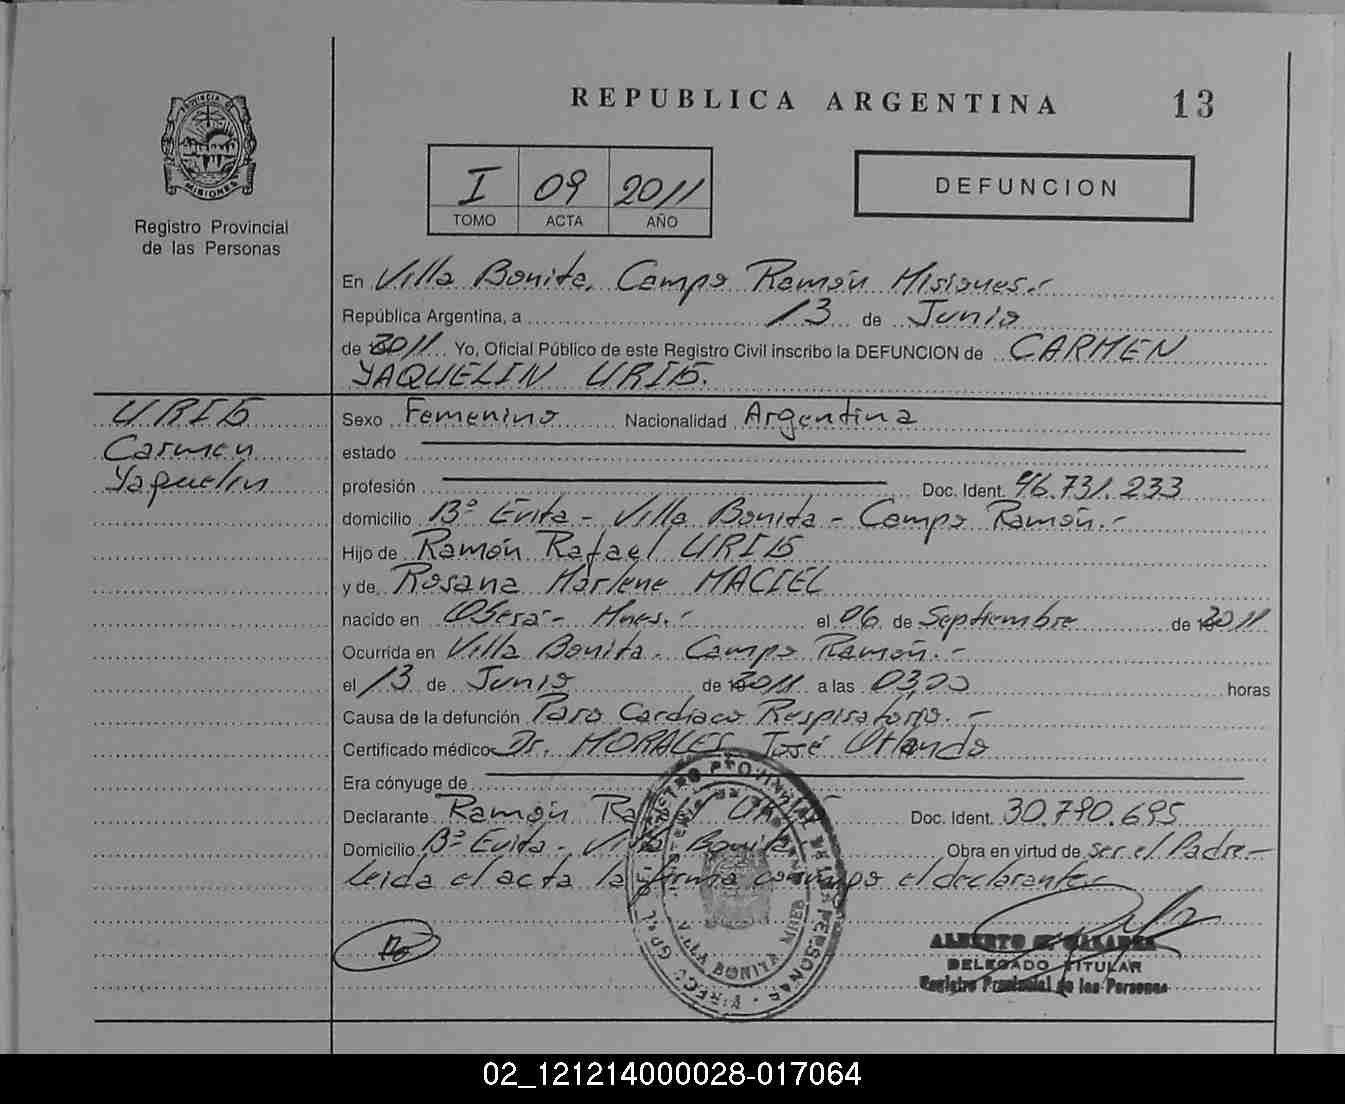 REPUBLICA ARGENTINA 13
PROVINCIA DE MISIONES
Registro Provincial
de las Personas
I 09 2011
TOMO ACTA AÑO
DEFUNCION
En Villa Bonita, Campo Ramón Misiones.-
República Argentina, a 13 de Junio
de 2011 Yo, Oficial Público de este Registro Civil inscribo la DEFUNCION de CARMEN
YAQUELIN
Carmen
Yaquelin
Sexo Femenino Nacionalidad Argentina
estado
profesión Doc. Ident. 46.731.233
domicilio Bº Evita - Villa Bonita - Campo Ramón.-
Hijo de Ramón Rafael
y de Rosana Marlene MACIEL
nacido en Oberá - Mnes.- el 06 de Septiembre de 2011
Ocurrida en Villa Bonita - Campo Ramón.-
el 13 de Junio de 2011 a las 03,00 horas
Causa de la defunción Paro Cardiaco Respiratorio.-
Certificado médico Dr. MORALES José Orlando
Era cónyuge de
Declarante Ramón Doc. Ident. 30.790.695
Domicilio Bº Evita - Villa Bonita Obra en virtud de ser el Padre-
leida el acta la firma conmigo el declarante
DELEGADO TITULAR
Registro Provincial de las Personas
VILLA BONITA
02_121214000028-017064